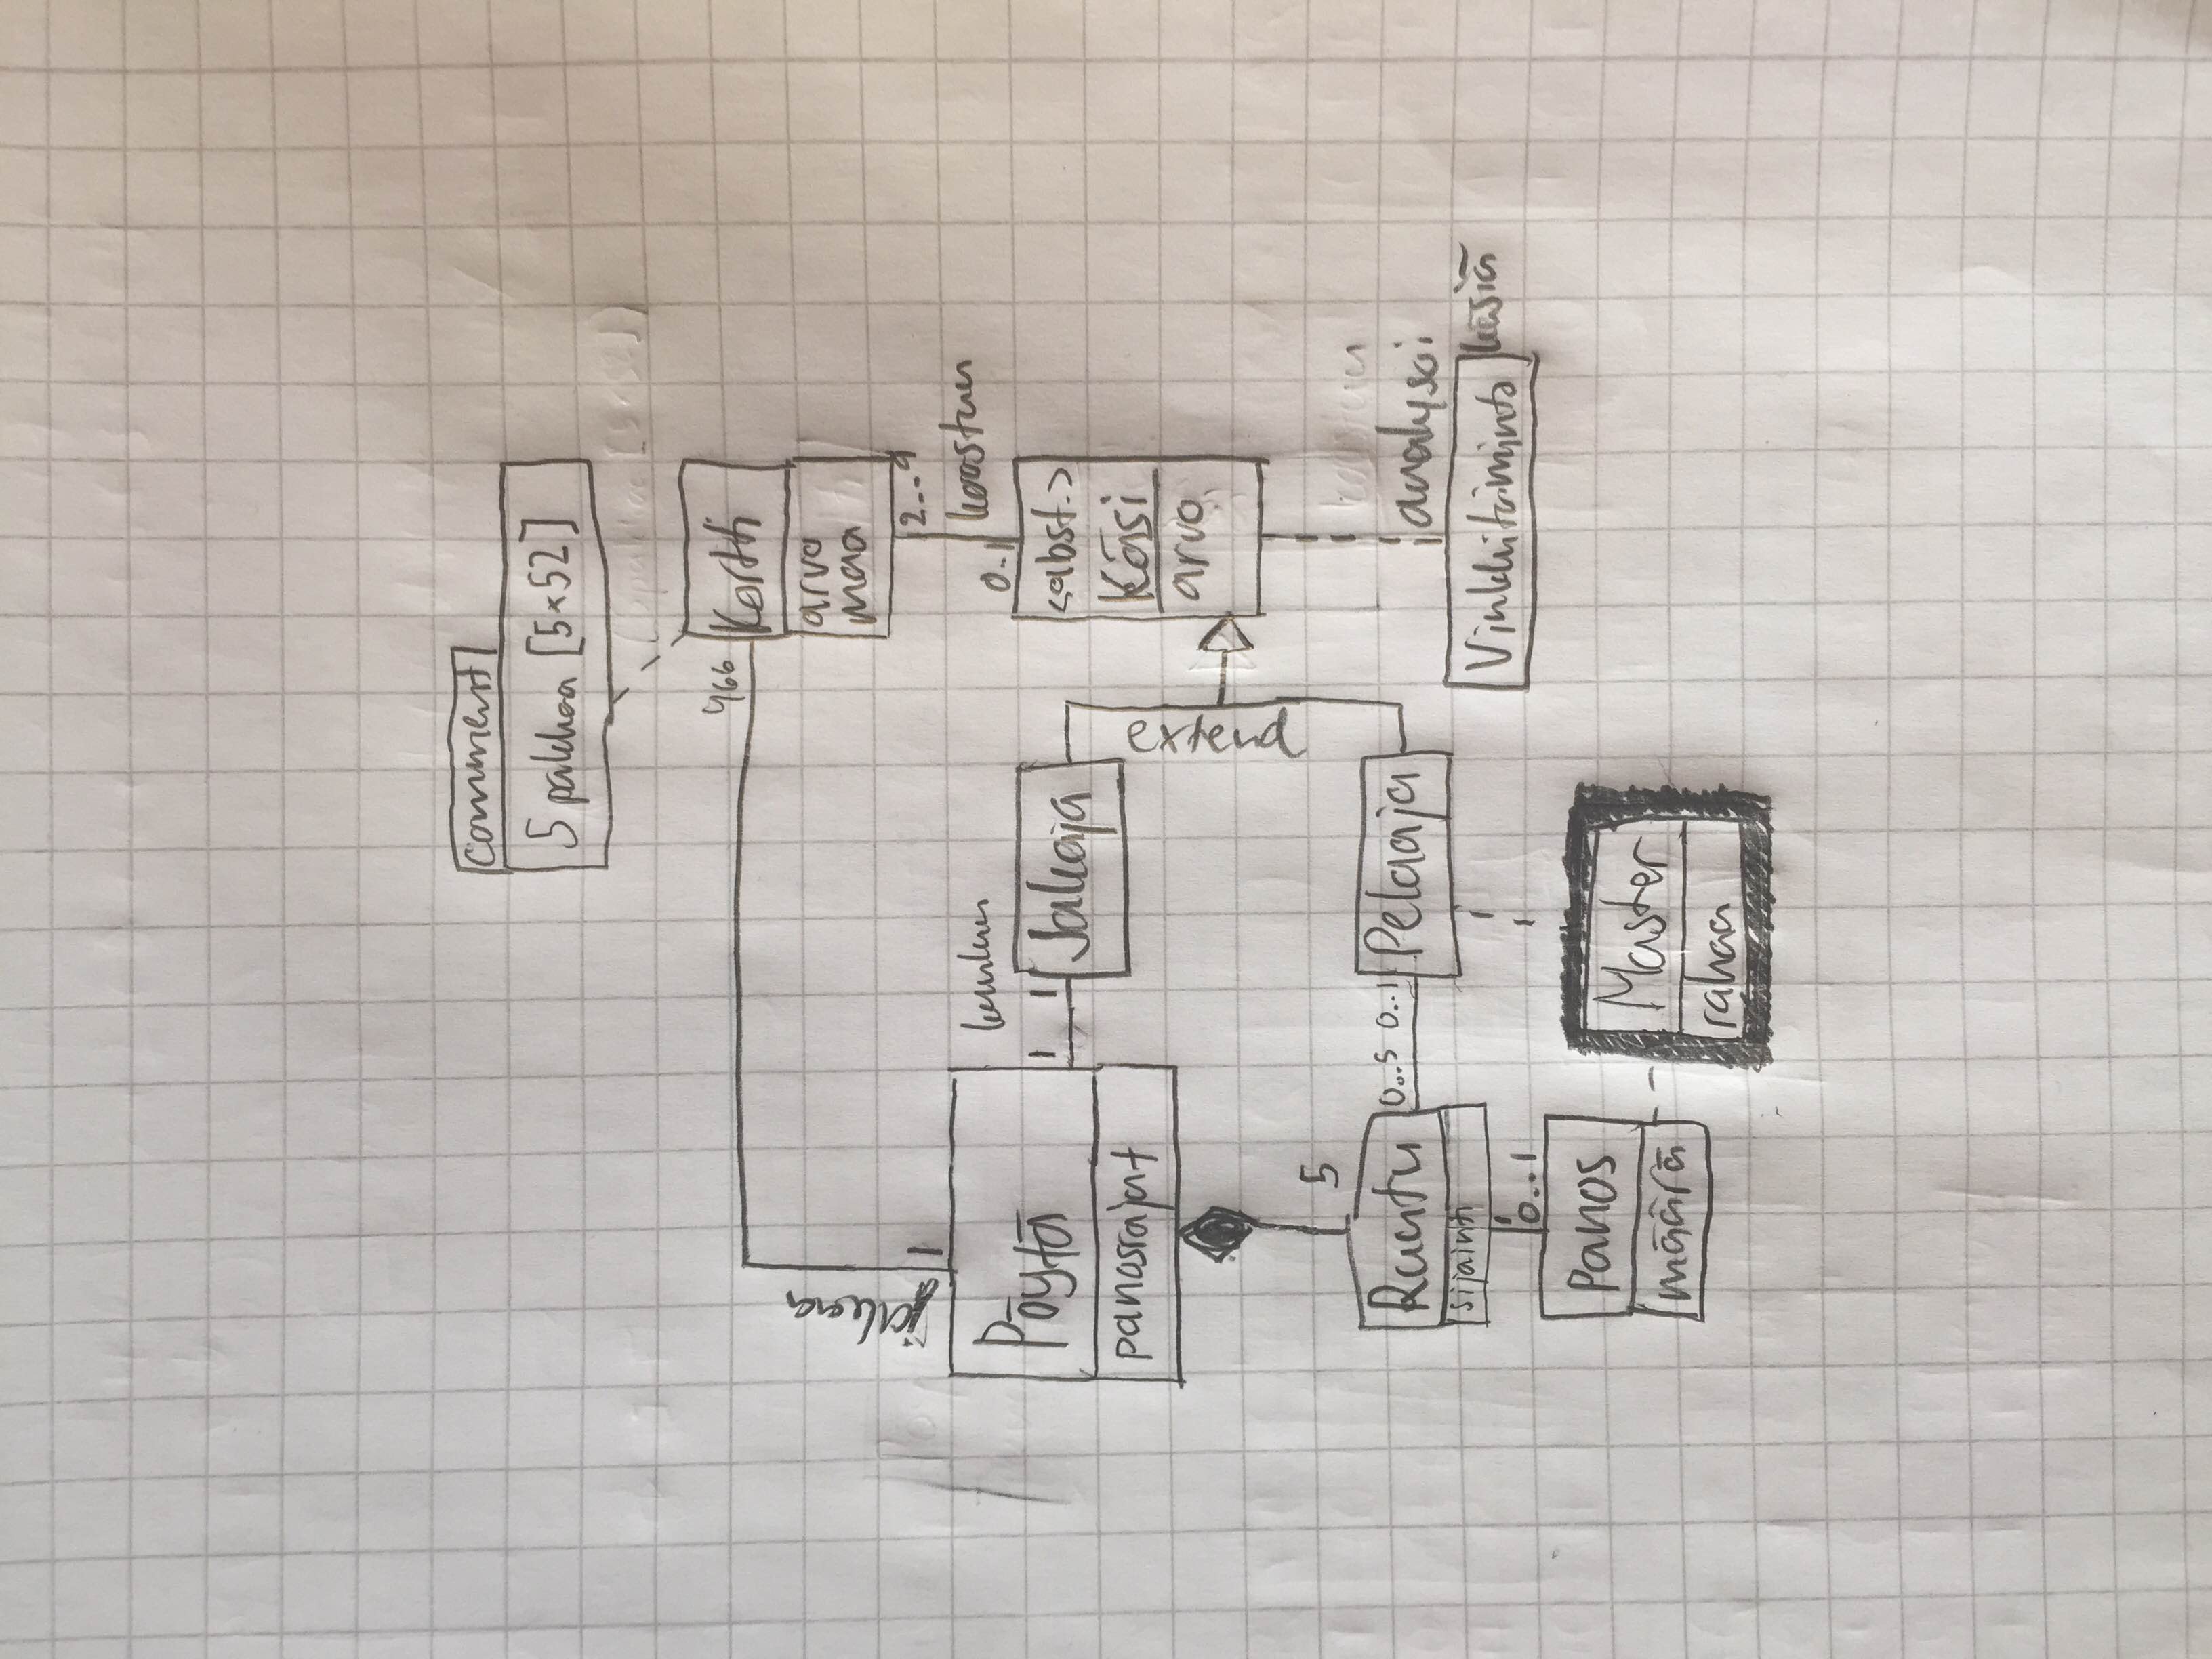 comment
5 pakkaa [5×52]
466
Kortti
arvo
maa
jakaa
1
2...9
koostuu
0..1
Pöytä
panosrajat
kuuluu
1 1
Jakaja
<abst.>
Käsi
arvo
extend
5
Ruutu
sijainti
0...5 0..1
Pelaaja
analysoi
käsiä
Vinkkitoiminto
0..1
panos
määrä
Master
rahaa